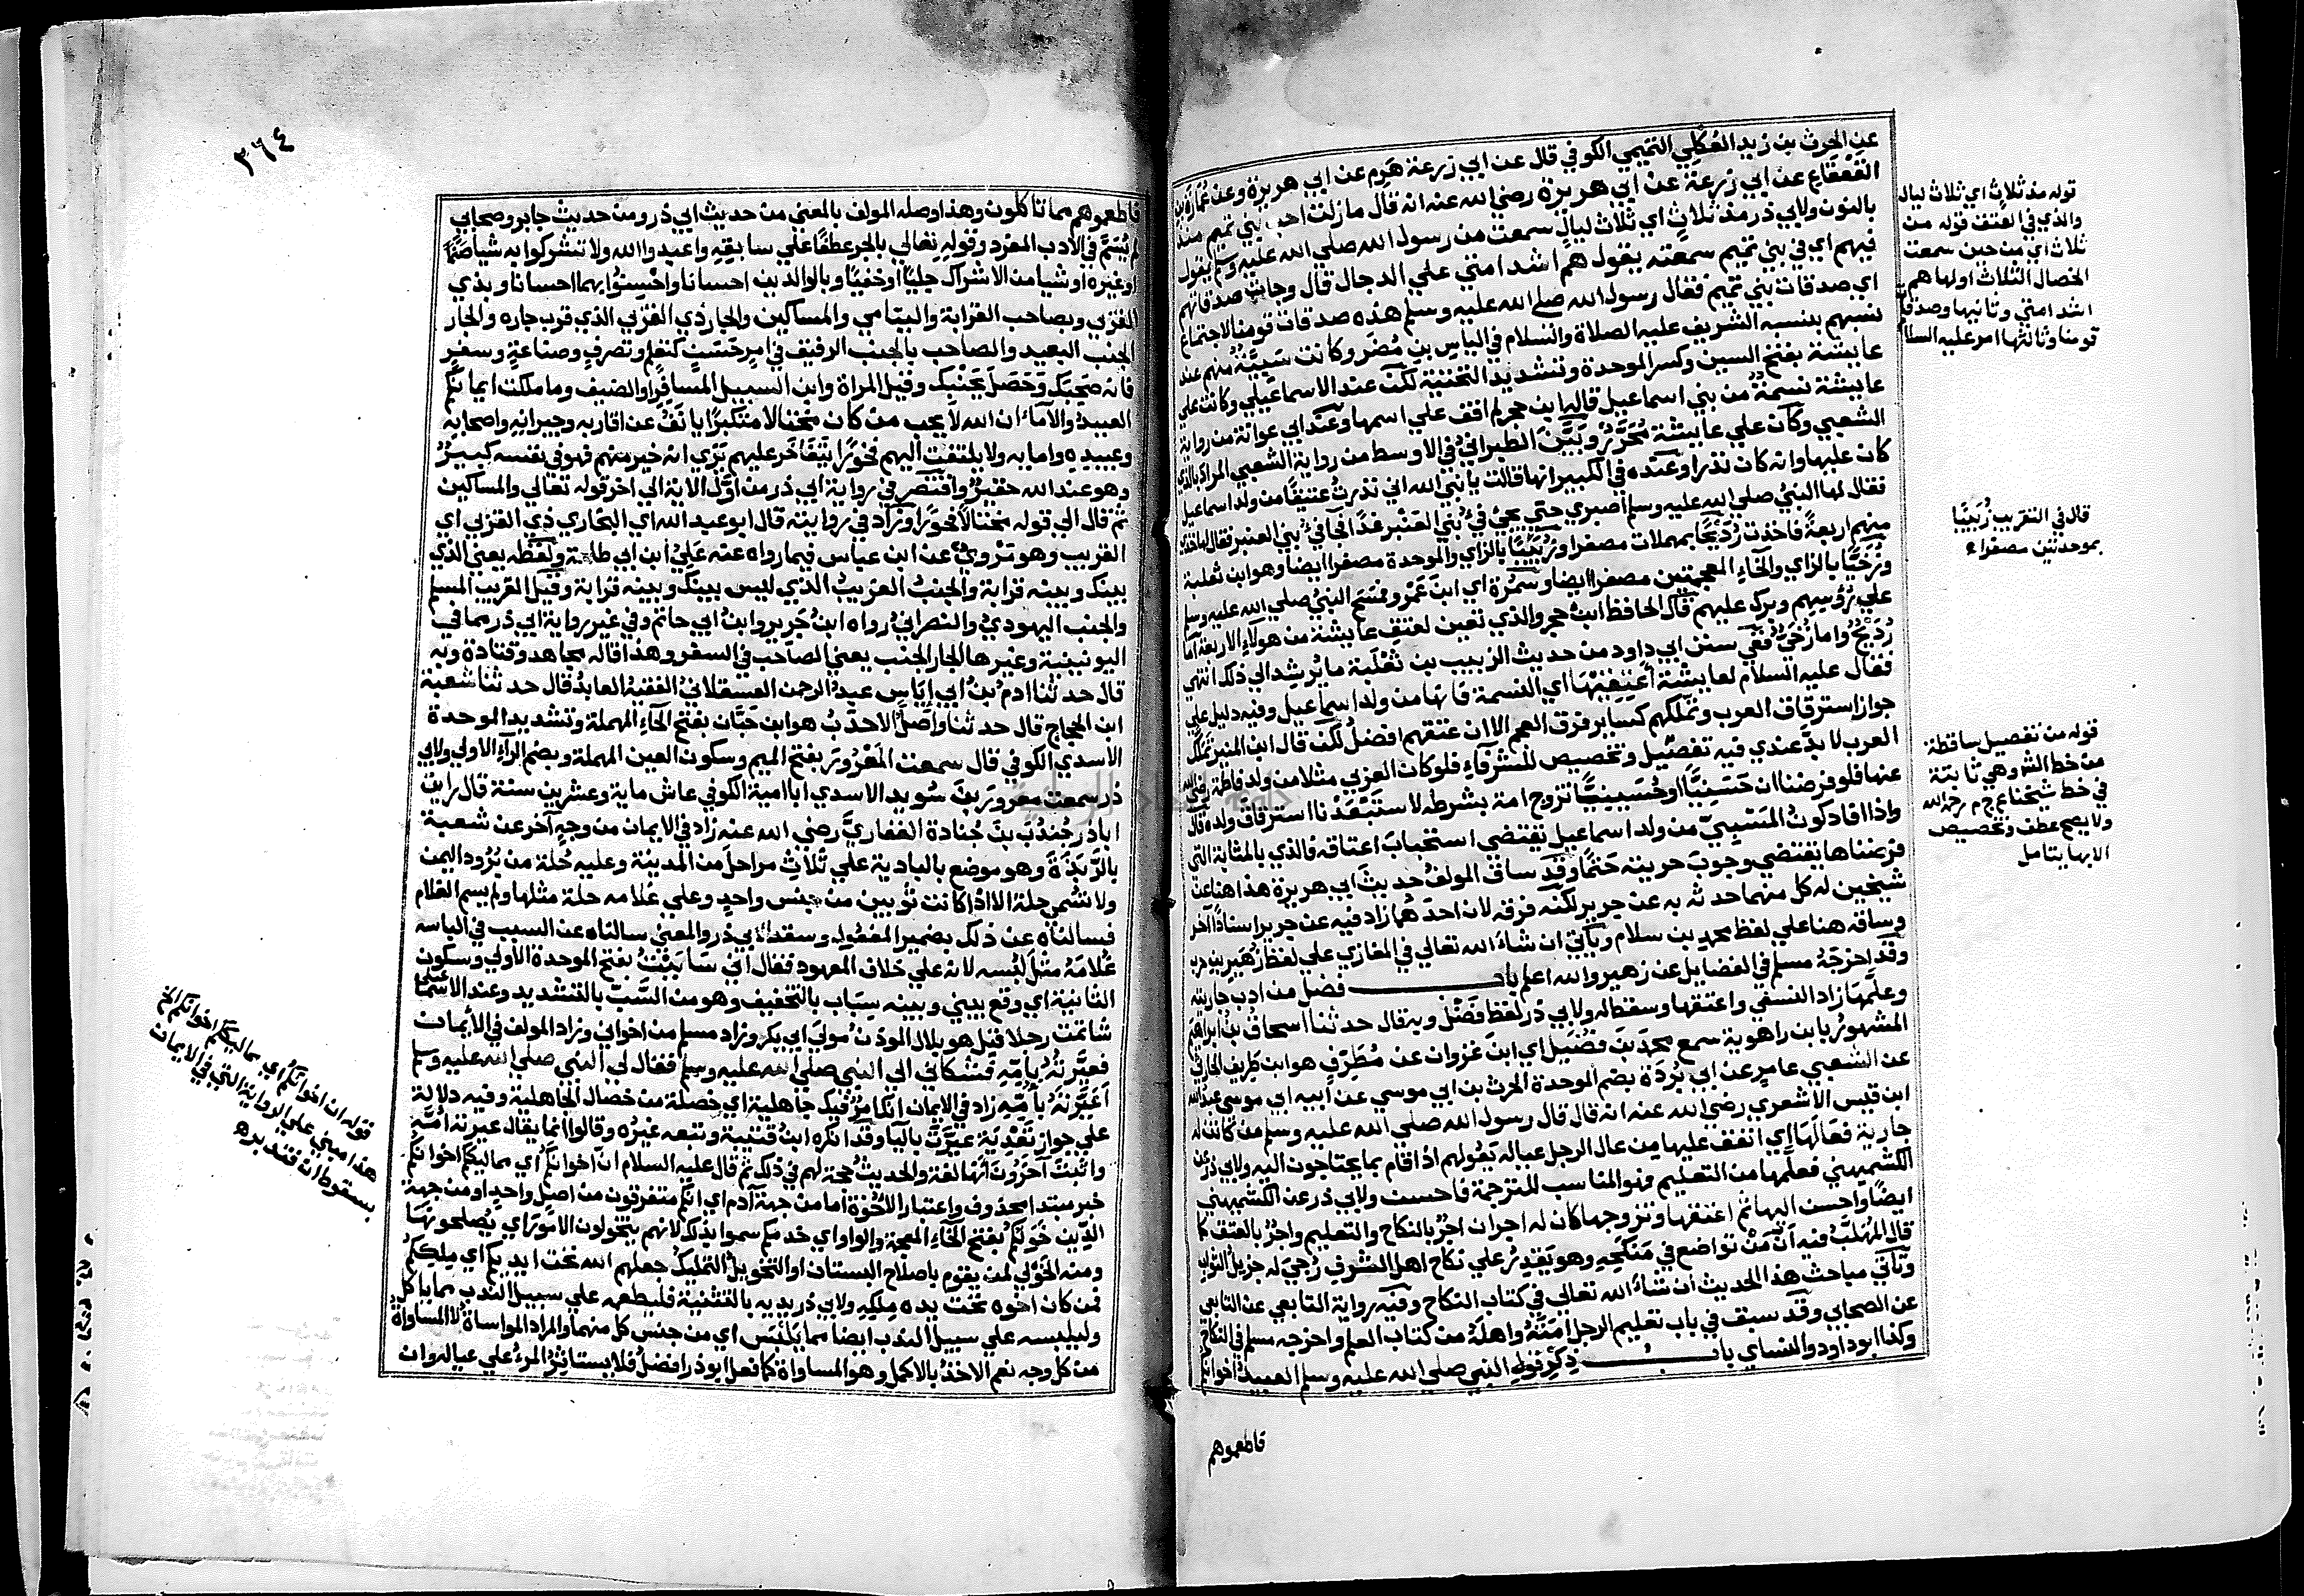 عن الحرث بن زيد العكلي التميمي الكوفي قال عن ابي زرعة هرم عن ابي هريرة وعن عمارة بن
القعقاع عن ابي زرعة عن ابي هريرة رضي الله عنه انه قال ما زلت احب بني تميم منذ
بالنون ولابي ذر مذ ثلاث اي ثلاث ليال سمعت من رسول الله صلي الله عليه وسلم يقول
فيهم اي في بني تميم سمعته يقول هم اشد امتي علي الدجال قال وجات صدقاتهم
اي صدقات بني تميم فقال رسول الله صلي الله عليه وسلم هذه صدقات قومنا لاجتماع
نسبهم بنسبه الشريف عليه الصلاة والسلام في الياس بن مضر وكانت سبية منهم عند
عايشة بفتح السين وكسر الموحدة وتشديد التحتية لكن عند الاسماعيلي وكانت علي
عايشة نسمة من بني اسماعيل قال ابن حجر لم اقف علي اسمها وعند ابي عوانة من رواية
الشعبي وكان علي عايشة محرر وبين الطبراني في الاوسط من رواية الشعبي المراد بالذي
كان عليها وانه كان نذرا وعنده في الكبير انها قالت يا نبي الله اني نذرت عتيقا من ولد اسماعيل
فقال لها النبي صلي الله عليه وسلم اصبري حتي يجئ في بني العنبر غدا فجا في بني العنبر فقال لها خذي
منهم اربعة فاخذت رديحا بمهملات مصغرا وزبيبا بالزاي والموحدة مصغرا ايضا وهو ابن ثعلبة
وزخيا بالزاي والخاء المعجمتين مصغرا ايضا وسمرة اي ابن عمرو فمسح النبي صلي الله عليه وسلم
علي رؤسهم وبرك عليهم قال الحافظ ابن حجر والذي تعين لعتق عايشة من هولاء الاربعة اما
رديح واما زخي ففي سنن ابي داود من حديث الزبيب بن ثعلبة ما يرشد الي ذلك انتهي
فقال عليه السلام لعايشة اعتقيها اي النسمة فانها من ولد اسماعيل وفيه دليل علي
جواز استرقاق العرب وتملكهم كساير فرق العجم الا ان عتقهم افضل لكن قال ابن المنير تملك
العرب لا بد عندي فيه تفصيل وتخصيص للشرفاء فلو كان العربي مثلا من ولد فاطمة رضي الله
عنها فلو فرضنا ان حسنيا او حسينيا تزوج امة بشرطه لاستبعدنا استرقاق ولده قال
واذا افاد كون المسبي من ولد اسماعيل يقتضي استحباب اعتاقه فالذي بالمثابة التي
فرضناها يقتضي وجوب حريته حتما وقد ساق المولف حديث ابي هريرة هذا هنا عن
شيخين له كل منهما حدثه به عن جرير لكنه فرقه لان احدهما زاد فيه عن جرير اسنادا اخر
وساقه هنا علي لفظ محمد بن سلام وياتي ان شاء الله تعالي في المغازي علي لفظ زهير بن حرب
وقد اخرجه مسلم في الفضايل عن زهير والله اعلم باب فضل من ادب جاريته
وعلمها زاد النسفي واعتقها وسقط له ولابي ذر لفظ فضل وبه قال حدثنا اسحاق بن ابراهيم
المشهور بابن راهوية سمع محمد بن فضيل اي ابن غزوان عن مطرف هو ابن طريف الحارثي
عن الشعبي عامر عن ابي بردة بضم الموحدة الحرث بن ابي موسي عن ابيه ابي موسي عبد الله
ابن قيس الاشعري رضي الله عنه انه قال قال رسول الله صلي الله عليه وسلم من كانت له
جارية فعالها اي انفق عليها من عال الرجل عياله يعولهم اذا قام بما يحتاجون اليه ولابي ذر عن
الكشميهني فعلمها من التعليم فهو المناسب للترجمة فاحسن ولابي ذر عن الكشميهني
ايضا واحسن اليها ثم اعتقها وتزوجها كان له اجران اجر بالنكاح والتعليم واجر بالعتق كا
قال المهلب فيه ان من تواضع في منكحه وهو يقدر علي نكاح اهل الشرف رجي له جزيل الثواب
وتاتي مباحث هذا الحديث ان شاء الله تعالي في كتاب النكاح وفيه رواية التابعي عن التابعي
عن الصحابي وقد سبق في باب تعليم الرجل امته واهله من كتاب العلم واخرجه مسلم في النكاح
وكذا ابو داود والنساي باب ذكر قول النبي صلي الله عليه وسلم العبيد اخوانكم
فاطعموهم
قوله مذ ثلاث اي ثلاث ليال
والذي في العتق قوله من
ثلاث اي من حين سمعت
الخصال الثلاث اولها هم
اشد امتي وثانيها وصدقات
قومنا وثالثها امر عليه السلام
قال في التقريب زبيبا
بموحدتين مصغرا
قوله من تفصيل ساقطة
من خط الش وهي ثابتة
في خط شيخنا ع ج م رحمه الله
ولا يصح عطف وتخصيص
الا بها يتامل
٣٦٤
فاطعموهم مما تاكلون وهذا وصله المولف بالمعني من حديث ابي ذر ومن حديث جابر وصحابي
لم يسم في الادب المفرد وقوله تعالي بالجر عطفا علي سابقه واعبدوا الله ولا تشركوا به شيا صنما
او غيره او شيا من الاشراك جليا او خفيا وبالوالدين احسانا واحسنوا بهما احسانا وبذي
القربي وبصاحب القرابة واليتامي والمساكين والجار ذي القربي الذي قرب جاره والجار
الجنب البعيد والصاحب بالجنب الرفيق في امر حسن كتعلم وتصرف وصناعة وسفر
فانه صحبك وحصل بجنبك وقيل المراة وابن السبيل المسافر او الضيف وما ملكت ايمانكم
العبيد والاماء ان الله لا يحب من كان مختالا متكبرا يانف عن اقاربه وجيرانه واصحابه
وعبيده وامايه ولا يلتفت اليهم فخورا يتفاخر عليهم يري انه خير منهم فهو في نفسه كبير
وهو عند الله حقير واقتصر في رواية ابي ذر من اول الاية الي اخر قوله تعالي والمساكين
ثم قال الي قوله مختالا فخورا وزاد في روايته قال ابو عبد الله اي البخاري ذي القربي اي
القريب وهو مروي عن ابن عباس فيما رواه عنه علي ابن ابي طلحة ولفظه يعني الذي
بينك وبينه قرابة والجنب الغريب الذي ليس بينك وبينه قرابة وقيل القريب المسلم
والجنب اليهودي والنصراني رواه ابن جرير وابن ابي حاتم وفي غير رواية ابي ذر مما في
اليونينية وغيرها الجار الجنب يعني الصاحب في السفر وهذا قاله مجاهد وقتادة وبه
قال حدثنا ادم بن ابي اياس عبد الرحمن العسقلاني الفقيه العابد قال حدثنا شعبة
ابن الحجاج قال حدثنا واصل الاحدب هو ابن حيان بفتح الحاء المهملة وتشديد الموحدة
الاسدي الكوفي قال سمعت المعرور بفتح الميم وسكون العين المهملة وبضم الراء الاولي ولابي
ذر سمعت معرور بن سويد الاسدي ابا امية الكوفي عاش ماية وعشرين سنة قال رايت
اباذر جندب بن جنادة الغفاري رضي الله عنه زاد في الايمان من وجه اخر عن شعبة
بالربذة وهو موضع بالبادية علي ثلاث مراحل من المدينة وعليه حلة من برود اليمن
ولا تسمي حلة الا اذا كانت ثوبين من جنس واحد وعلي غلامه حلة مثلها ولم يسم الغلام
فسالناه عن ذلك بضمير المفعول وسقط لابي ذر والمعني سالناه عن السبب في الباسه
غلامه مثل لبسه لانه علي خلاف المعهود فقال اني ساببت بفتح الموحدة الاولي وسكون
الثانية اي وقع بيني وبينه سباب بالتخفيف وهو من السب بالتشديد وعند الاسماعيلي
شاتمت رجلا قيل هو بلال الموذن مولي ابي بكر وزاد مسلم من اخواني وزاد المولف في الايمان
فعيرته بامه فشكاني الي النبي صلي الله عليه وسلم فقال لي النبي صلي الله عليه وسلم
اعيرته بامه زاد في الايمان انك امرؤ فيك جاهلية اي خصلة من خصال الجاهلية وفيه دلالة
علي جواز تعدية عيرت بالبا وقد انكره ابن قتيبة وتبعه غيره وقالوا انما يقال عيرته امه
واثبت اخرون انها لغة والحديث حجة لهم في ذلك ثم قال عليه السلام ان اخوانكم اي مماليككم اخوانكم
خبر مبتدا محذوف واعتبار الاخوة اما من جهة ادم اي انكم متفرقون من اصل واحد او من جهة
الدين خولكم بفتح الخاء المعجمة والواو اي خدمكم سموا بذلك لانهم يتخولون الامور اي يصلحونها
ومنه الخولي لمن يقوم باصلاح البستان او التخويل التمليك جعلهم الله تحت ايديكم اي ملككم
فمن كان اخوه تحت يده ملكه ولابي ذر يديه بالتثنية فليطعمه علي سبيل الندب مما ياكل
وليلبسه علي سبيل الندب ايضا مما يلبس اي من جنس كل منهما والمراد المواساة لا المساواة
من كل وجه نعم الاخذ بالاكمل وهو المساواة كما فعل ابو ذر افضل فلا يستاثر المرء علي عياله وان
قوله ان اخوانكم اي مماليككم اخوانكم الخ
هذا مبني علي الرواية التي في الايمان
بسقوط ان فتدبره